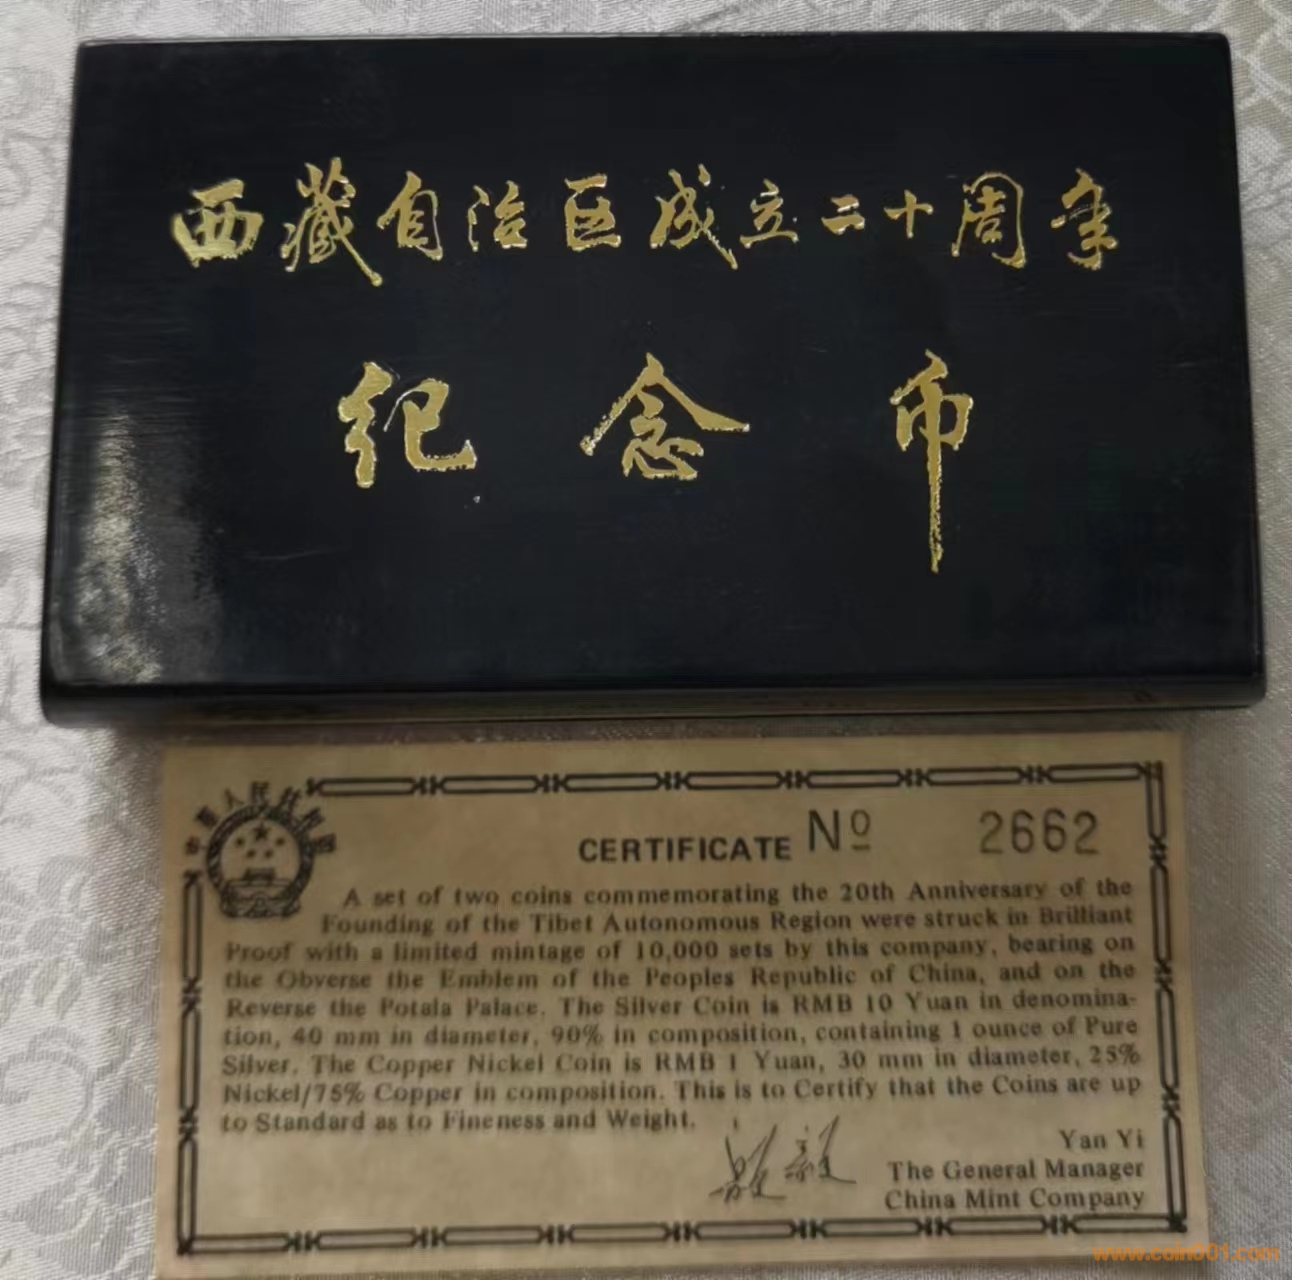 西藏自治区成立二十周年
纪念币
中华人民共和国
CERTIFICATE No 2662
A set of two coins commemorating the 20th Anniversary of the
Founding of the Tibet Autonomous Region were struck in Brilliant
Proof with a limited mintage of 10,000 sets by this company, bearing on
the Obverse the Emblem of the Peoples Republic of China, and on the
Reverse the Potala Palace. The Silver Coin is RMB 10 Yuan in denomina-
tion, 40 mm in diameter, 90% in composition, containing 1 ounce of Pure
Silver. The Copper Nickel Coin is RMB 1 Yuan, 30 mm in diameter, 25%
Nickel/75% Copper in composition. This is to Certify that the Coins are up
to Standard as to Fineness and Weight.
Yan Yi
The General Manager
China Mint Company
www.coin001.com